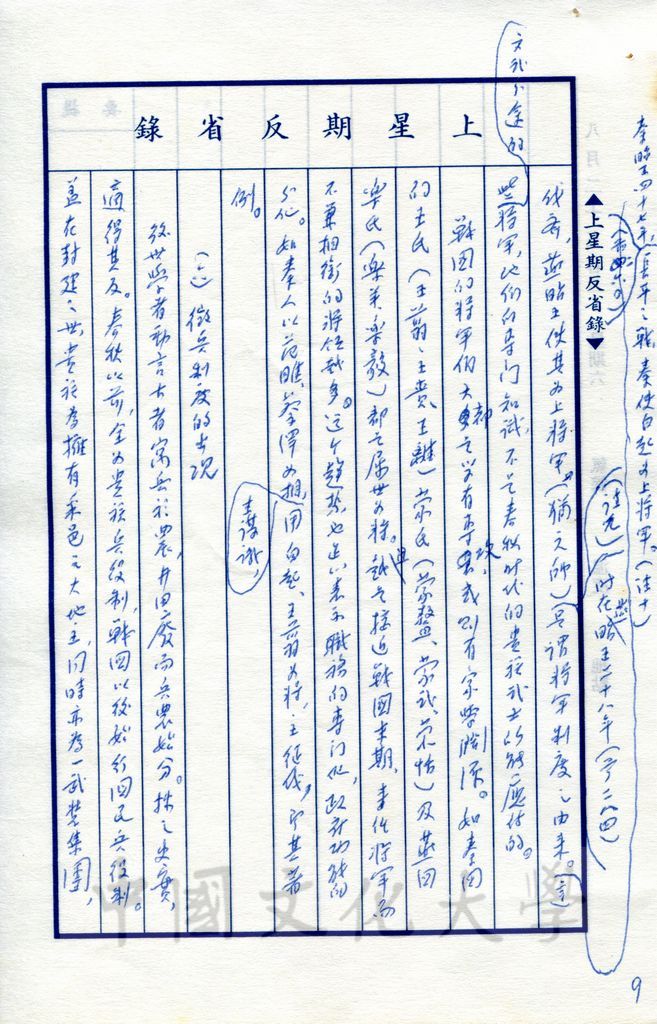 上星期反省錄
▲上星期反省錄▼
秦昭王四十七年(長平之戰,秦使白起為上將軍。(註十)
時在燕昭王二十八年(前二八四)
伐齊,燕昭王使其為上將軍,(猶元帥)(是謂將軍制度之由來。
文武分途的
些將軍,他們的專門知識,不是春秋時代的貴族武士所能應付的。
戰國的將軍們大都是學有專攻,或則有家學淵源。如秦國
的王氏(王翦、王賁、王離)蒙氏(蒙驁、蒙武、蒙恬)及燕國
樂氏(樂羊、樂毅)都是屬世為將。越是接近戰國末期,專任將軍而
不兼相銜的將領越多。這个趨勢也足以表示職務的專門化,政府功能的
分化。如秦人以范雎、蔡澤為相,主謀謨,用白起、王翦為將,主征伐,即其著
例。
(二)徵兵制度的出現
後世學者動言古者寓兵於農,井田廢而兵農始分。揆之史實,
適得其反。春秋以前,全為貴族兵役制,戰國以後始行國民兵役制。
蓋在封建之世,貴族為擁有采邑之大地主,同時亦為一武裝集團,
中國文化大學
9